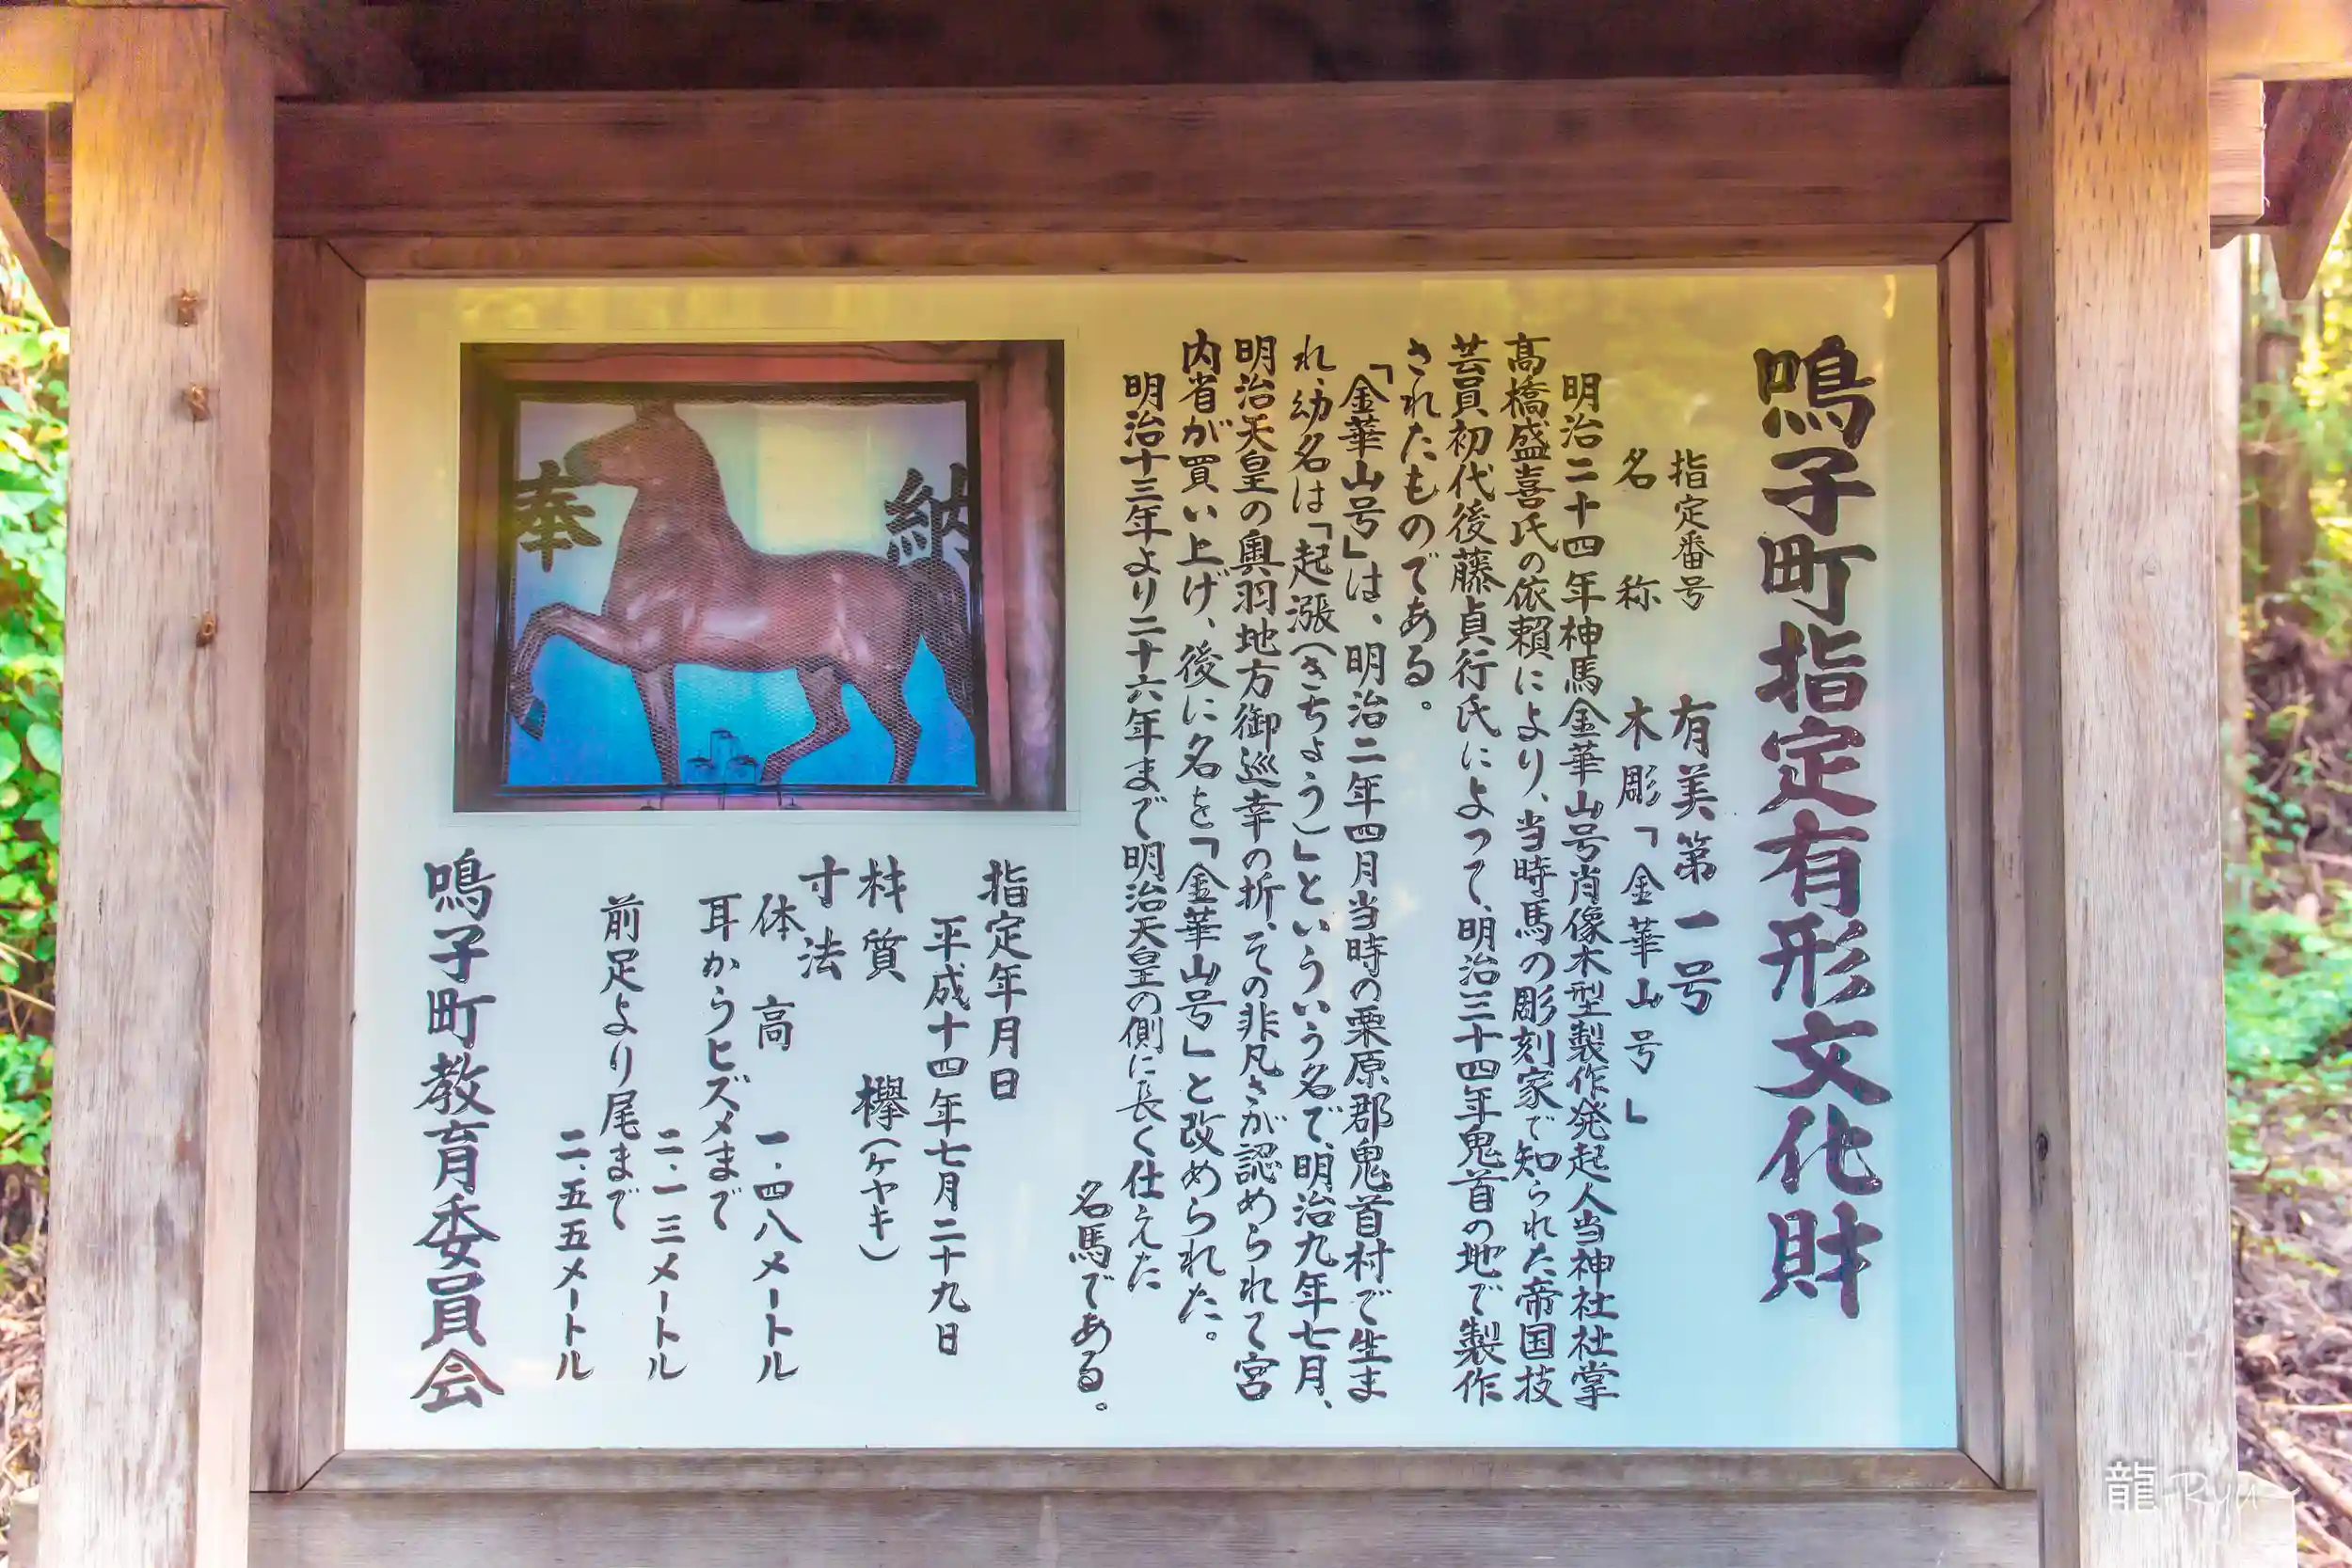 鳴子町指定有形文化財
指定番号 有美第一号
名称 木彫「金華山号」
明治二十四年神馬金華山号肖像木型製作発起人当神社社掌
高橋盛喜氏の依頼により、当時馬の彫刻家で知られた帝国技
芸員初代後藤貞行氏によって、明治三十四年鬼首の地で製作
されたものである。
「金華山号」は、明治二年四月当時の栗原郡鬼首村で生ま
れ、幼名は「起漲(きちょう)」といういう名で、明治九年七月、
明治天皇の奥羽地方御巡幸の折、その非凡さが認められて宮
内省が買い上げ、後に名を「金華山号」と改められた。
明治十三年より二十六年まで明治天皇の側に長く仕えた
名馬である。
指定年月日
平成十四年七月二十九日
材質 欅(ケヤキ)
寸法
体高 一.四八メートル
耳からヒズメまで
二.一三メートル
前足より尾まで
二.五五メートル
鳴子町教育委員会
奉納
龍 Ryu